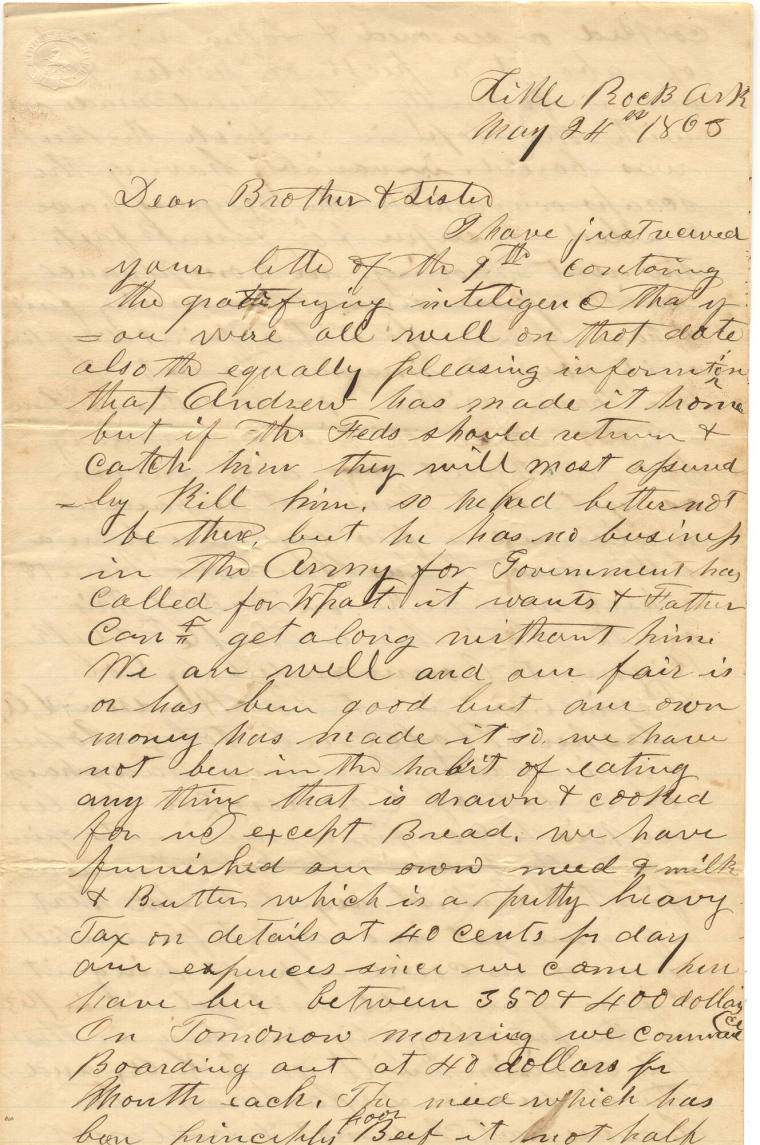 Little Rock Ark
May 24th 186
Dear Brother & Sister
I have just recived
your lette of th 9th containg
the gratifying inteligence tha y
=ou were all well on that date
also th equally pleasing informtion
that Andrew has made it home
but if the Feds should return &
catch him they will most assured
=ly Kill him. so he had better not
be there, but he has no business
in the Army for Government has
called for What it wants & Father
Can=t get along without him
We are well and our fair is
or has been good but our own
money has made it so. we have
not ben in the habit of eating
any thing that is drawn & cooked
for us except Bread. we have
furnished our own meed & milk
& Butter which is a pretty heavy
Tax on details at 40 cents pr day
our expences since we came here
have ben between 350 & 400 dollars
On Tomorrow morning we commence
Boarding out at 40 dollars pr
Month each. The meed which has
ben principly poor Beef it not half